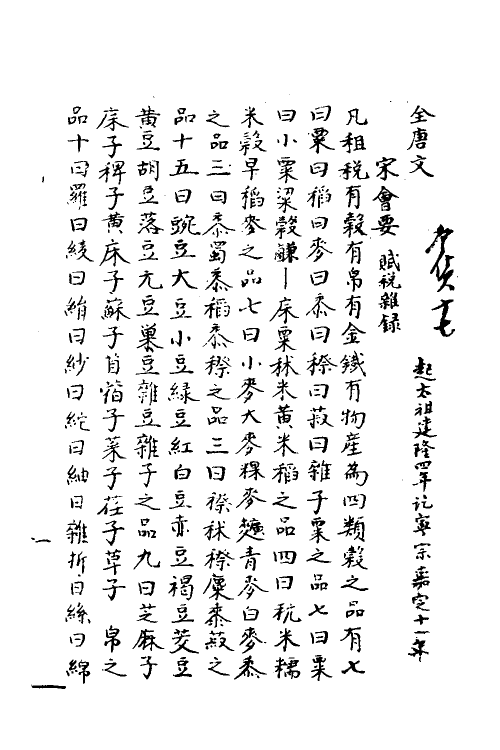 全唐文
食貨十七
宋會要 賦稅雜錄
起太祖建隆四年訖寧宗嘉定十一年
凡租税有穀有帛有金鐵有物產為四類穀之品有七
曰粟曰稻曰麥曰黍曰穄曰菽曰雜子粟之品七曰粟
曰小粟粱穀䵖床粟秫米黄米稻之品四曰秔米糯
米穀旱稻麥之品七曰小麥大麥粿麥䴬青麥白麥黍
之品三曰黍蜀黍稻黍穄之品三曰穄秫穄糜黍菽之
品十五曰豌豆大豆小豆緑豆紅白豆赤豆褐豆茭豆
黄豆胡豆落豆元豆巢豆雜豆雜子之品九曰芝麻子
床子稗子黄床子蘇子苜蓿子菜子荏子草子 帛之
品十曰羅曰綾曰絹曰紗曰絁曰紬曰雜折曰絲曰綿
一